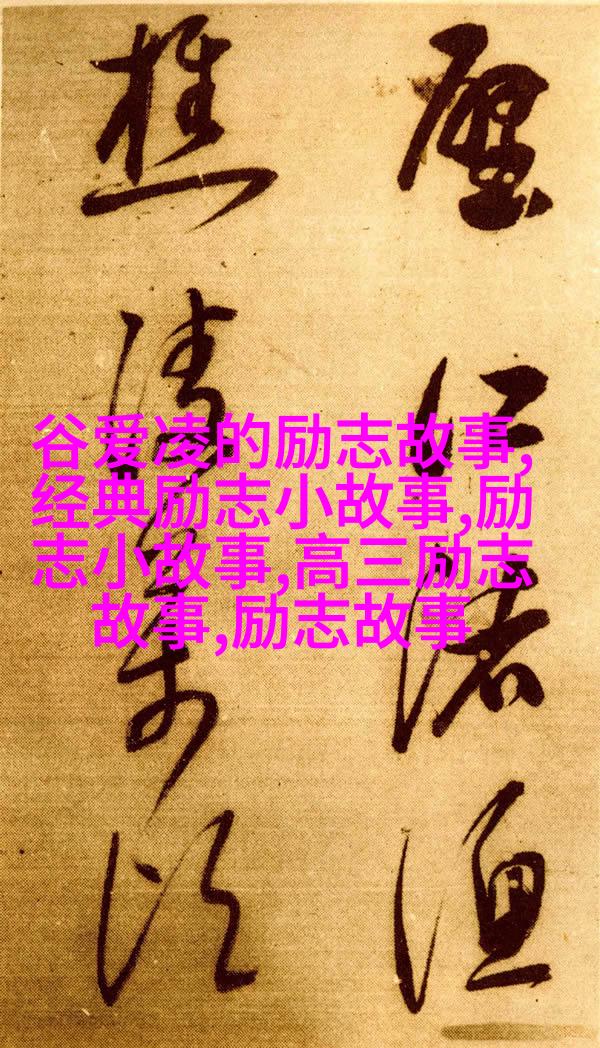 谷爱凌的励志故事,
经典励志小故事,励
志小故事,高三励志
故事,励志故事
江渚漁
樵